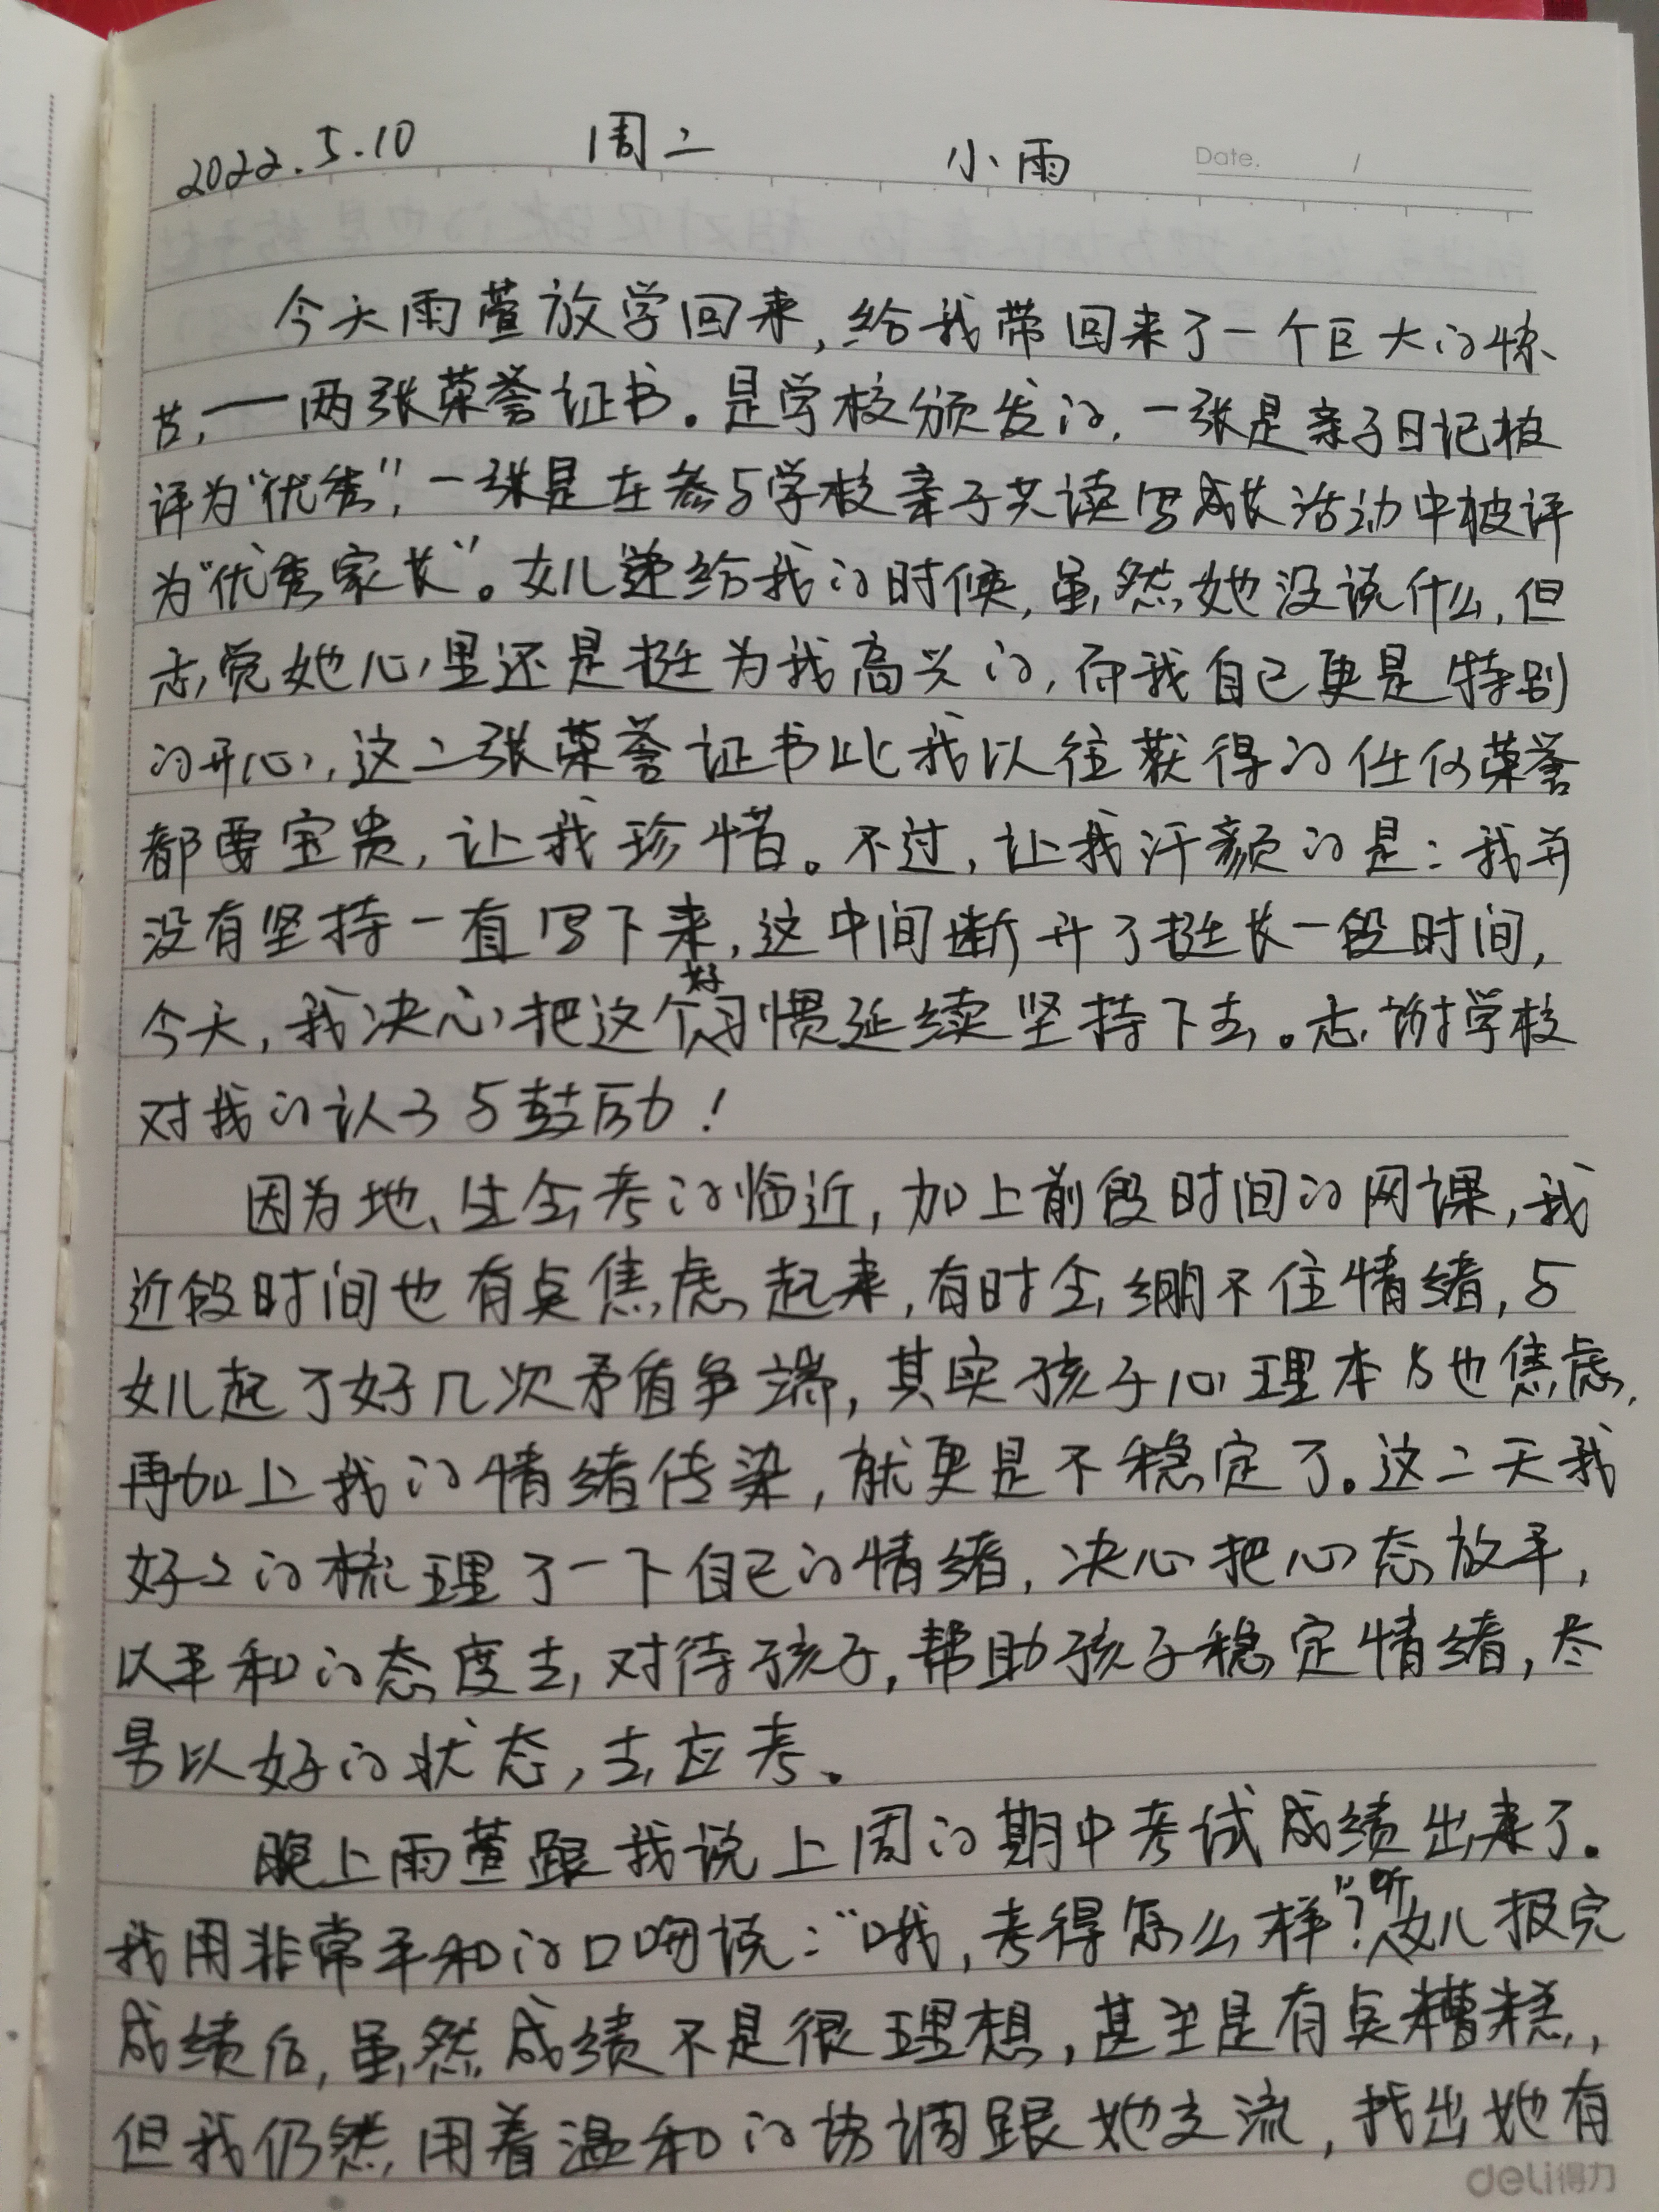 2022.5.10 周二 小雨 Date. /
今天雨萱放学回来,给我带回来了一个巨大的惊
喜,——两张荣誉证书。是学校颁发的,一张是亲子日记被
评为“优秀”,一张是在参与学校亲子共读写成长活动中被评
为“优秀家长”。女儿递给我的时候,虽然她没说什么,但
感觉她心里还是挺为我高兴的,而我自己更是特别
的开心,这二张荣誉证书比我以往获得的任何荣誉
都要宝贵,让我珍惜。不过,让我汗颜的是:我并
没有坚持一直写下来,这中间断开了挺长一段时间,
今天,我决心把这个好习惯延续坚持下去。感谢学校
对我的认可与鼓励!
因为地、生会考的临近,加上前段时间的网课,我
近段时间也有点焦虑起来,有时会绷不住情绪,与
女儿起了好几次矛盾争端,其实孩子心理本身也焦虑,
再加上我的情绪传染,就更是不稳定了。这二天我
好之的梳理了一下自己的情绪,决心把心态放平,
以平和的态度去对待孩子,帮助孩子稳定情绪,尽
量以好的状态,去应考。
晚上雨萱跟我说上周的期中考试成绩出来了。
我用非常平和的口吻说:“哦,考得怎么样”?听女儿报完
成绩后,虽然成绩不是很理想,甚至是有点糟糕,
但我仍然用着温和的协调跟她交流,找出她有
deli得力